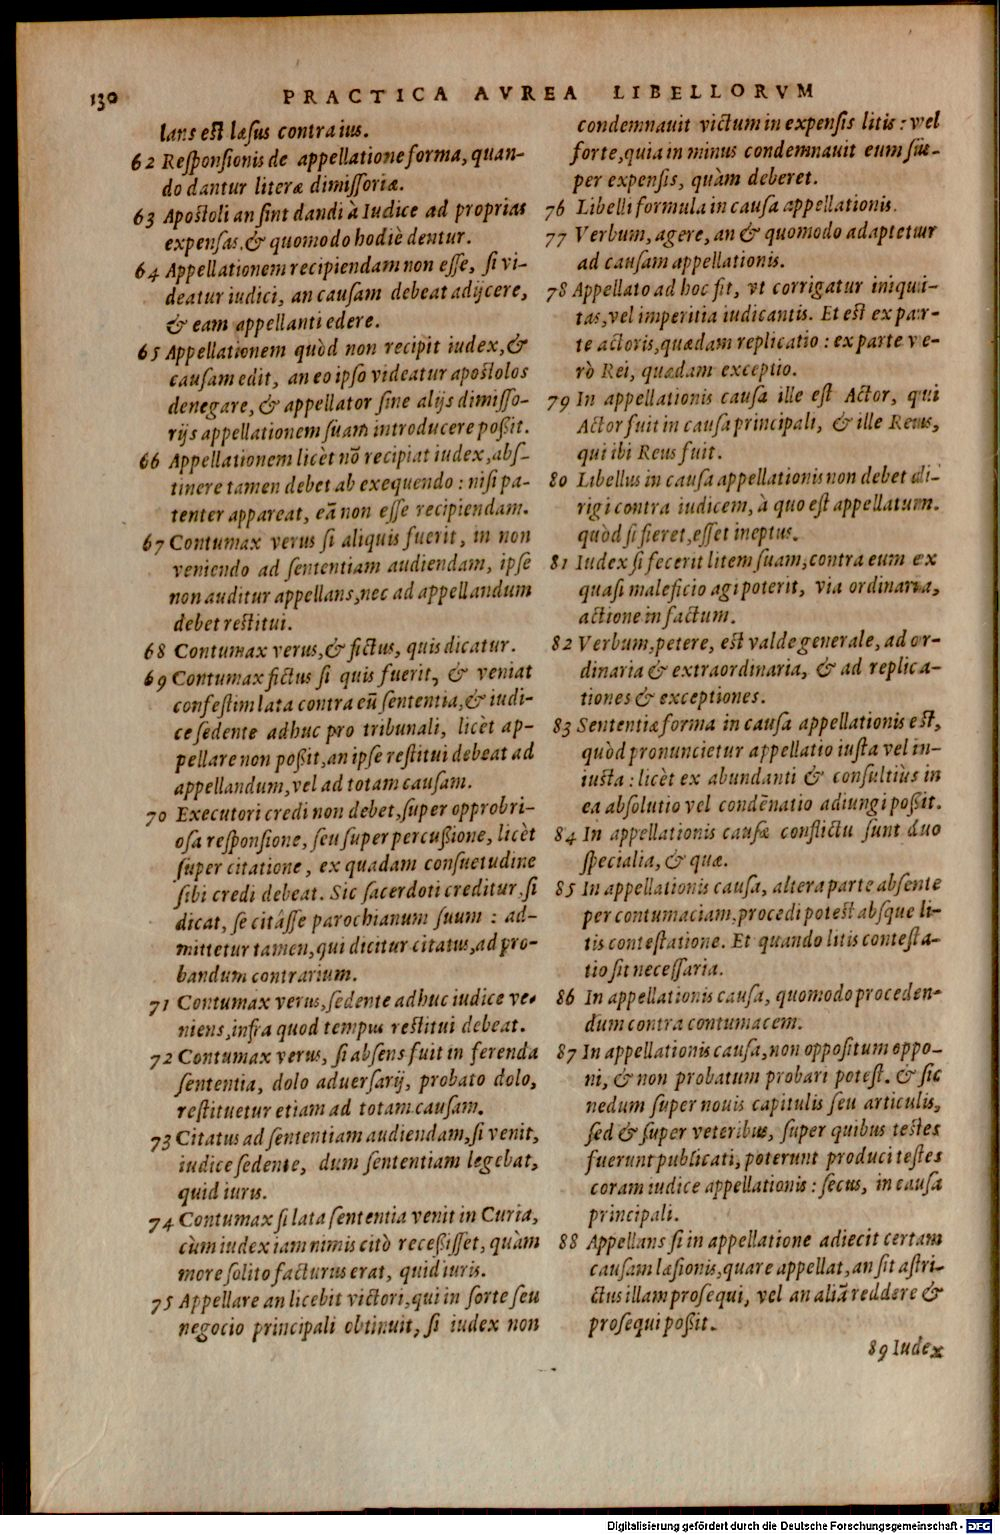 130
PRACTICA AVREA LIBELLORVM
lans est læsus contra ius.
62 Responsionis de appellatione forma, quan-
do dantur literæ dimissoriæ.
63 Apostoli an sint dandi à Iudice ad proprias
expensas, & quomodo hodiè dentur.
64 Appellationem recipiendam non esse, si vi-
deatur iudici, an causam debeat adijcere,
& eam appellanti edere.
65 Appellationem quòd non recipit iudex, &
causam edit, an eo ipso videatur apostolos
denegare, & appellator sine alijs dimisso-
rijs appellationem suam introducere poßit.
66 Appellationem licèt nō recipiat iudex, abs-
tinere tamen debet ab exequendo: nisi pa-
tenter appareat, eā non esse recipiendam.
67 Contumax verus si aliquis fuerit, in non
veniendo ad sententiam audiendam, ipse
non auditur appellans, nec ad appellandum
debet restitui.
68 Contumax verus, & fictus, quis dicatur.
69 Contumax fictus si quis fuerit, & veniat
confestim lata contra eū sententia, & iudi-
ce sedente adhuc pro tribunali, licèt ap-
pellare non poßit, an ipse restitui debeat ad
appellandum, vel ad totam causam.
70 Executori credi non debet, super opprobri-
osa responsione, seu super percußione, licèt
super citatione, ex quadam consuetudine
sibi credi debeat. Sic sacerdoti creditur, si
dicat, se citâsse parochianum suum: ad-
mittetur tamen, qui dicitur citatus, ad pro-
bandum contrarium.
71 Contumax verus, sedente adhuc iudice ve-
niens, infra quod tempus restitui debeat.
72 Contumax verus, si absens fuit in ferenda
sententia, dolo aduersarij, probato dolo,
restituetur etiam ad totam causam.
73 Citatus ad sententiam audiendam, si venit,
iudice sedente, dum sententiam legebat,
quid iuris.
74 Contumax si lata sententia venit in Curia,
cùm iudex iam nimis citò receßisset, quàm
more solito facturus erat, quid iuris.
75 Appellare an licebit victori, qui in sorte seu
negocio principali obtinuit, si iudex non
condemnauit victum in expensis litis: vel
forte, quia in minus condemnauit eum su-
per expensis, quàm deberet.
76 Libelli formula in causa appellationis.
77 Verbum, agere, an & quomodo adaptetur
ad causam appellationis.
78 Appellato ad hoc fit, vt corrigatur iniqui-
tas, vel imperitia iudicantis. Et est ex par-
te actoris, quædam replicatio: ex parte ve-
rò Rei, quædam exceptio.
79 In appellationis causa ille est Actor, qui
Actor fuit in causa principali, & ille Reus,
qui ibi Reus fuit.
80 Libellus in causa appellationis non debet di-
rigi contra iudicem, à quo est appellatum.
quòd si fieret, esset ineptus.
81 Iudex si fecerit litem suam, contra eum ex
quasi maleficio agi poterit, via ordinaria,
actione in factum.
82 Verbum, petere, est valde generale, ad or-
dinaria & extraordinaria, & ad replica-
tiones & exceptiones.
83 Sententiæ forma in causa appellationis est,
quòd pronuncietur appellatio iusta vel in-
iusta: licèt ex abundanti & consultiùs in
ea absolutio vel condēnatio adiungi poßit.
84 In appellationis causæ conflictu sunt duo
specialia, & quæ.
85 In appellationis causa, altera parte absente
per contumaciam, procedi potest absque li-
tis contestatione. Et quando litis contesta-
tio sit necessaria.
86 In appellationis causa, quomodo proceden-
dum contra contumacem.
87 In appellationis causa, non oppositum oppo-
ni, & non probatum probari potest. & sic
nedum super nouis capitulis seu articulis,
sed & super veteribus, super quibus testes
fuerunt publicati, poterunt produci testes
coram iudice appellationis: secus, in causa
principali.
88 Appellans si in appellatione adiecit certam
causam læsionis, quare appellat, an sit astri-
ctus illam prosequi, vel an aliā reddere &
prosequi poßit.
89 Iudex
Digitalisierung gefördert durch die Deutsche Forschungsgemeinschaft - DFG